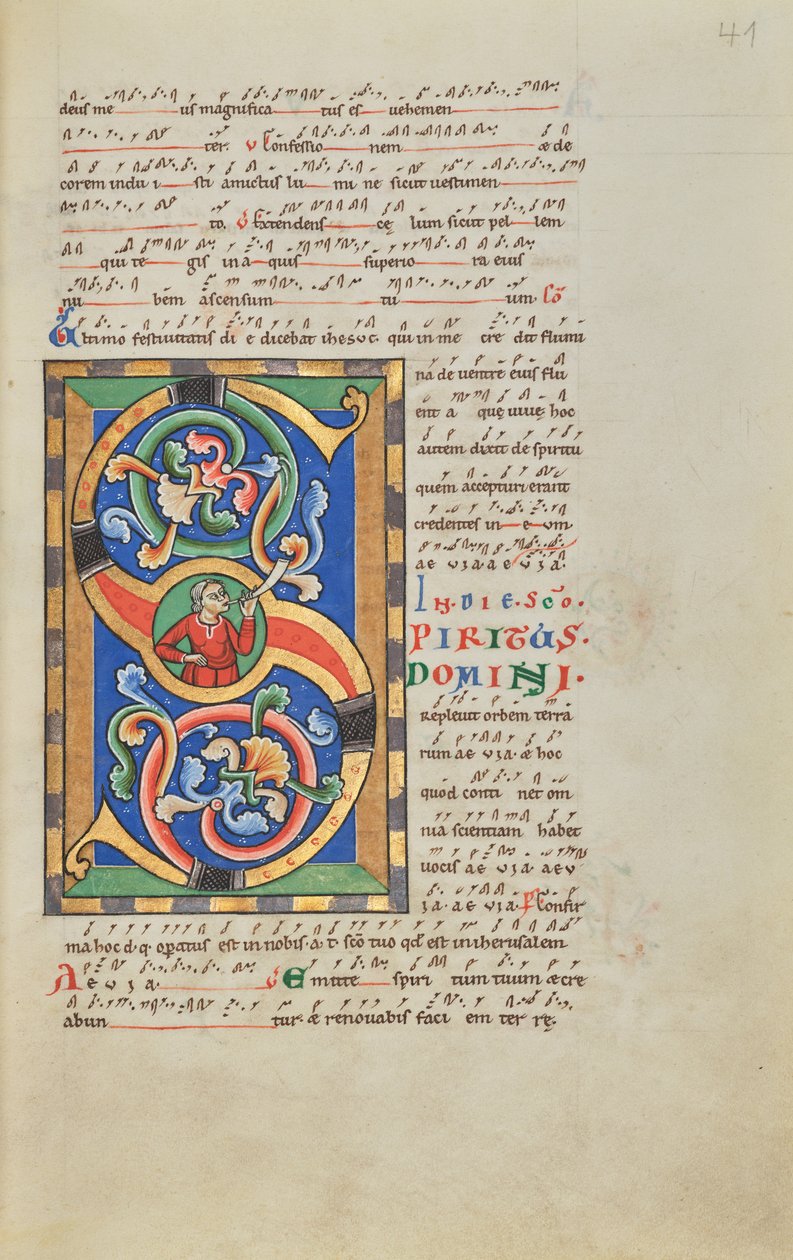 41
deus me us magnifica tus es vehemen
ter. V Confessio nem æ de
corem indu i sti amictus lu mi ne sicut vestimen
to. V Extendens cę lum sicut pel lem
qui te gis in a quis superio ra eius
nu bem ascensum tu um. CŌ
Ultimo festivitatis di e dicebat ihesus qui in me cre dit flumi
na de ventre eius flu
ent a quę vivę hoc
autem dixit de spiritu
quem accepturi erant
credentes in e um
ae v ia. a e v ia.
IN. DIE. SCŌ.
S
PIRITUS.
DOMINI.
Replevit orbem terra
rum ae via. æ hoc
quod conti net om
nia scientiam habet
vocis ae via. aev
ia. ae via. P Confir
ma hoc d. q. opatus est in nobis. a. t. scō tuo qd est in iherusalem
A e v i a. V Emitte spiri tum tuum æ cre
abun tur. æ renovabis faci em ter rę.